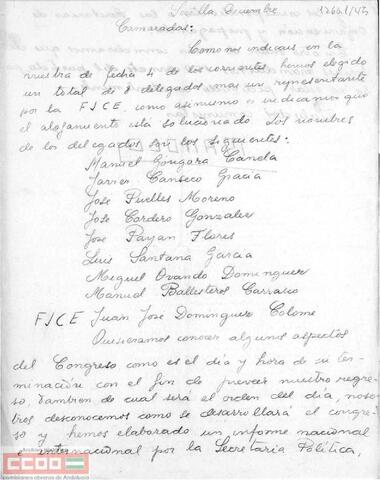 Sevilla Diciembre
1260.1/43
Camaradas:
Como nos indicais en la
vuestra de fecha 4 de los corrientes hemos elegido
un total de 8 delegados mas un representante
por la FJCE, como asimismo os indicamos que
el alojamiento esta solucionado. Los nombres
de los delegados son los siguientes:
Manuel Gongora Canela
Javier Canseco Gracia
Jose Puelles Moreno
Jose Cordero Gonzalez
Jose Payan Flores
Luis Santana Garcia
Miguel Ovando Dominguez
Manuel Ballesteros Carrasco
FJCE Juan Jose Dominguez Colome
Quisieramos conocer algunos aspectos
del Congreso como es el dia y hora de su ter-
minación con el fin de preveer nuestro regre-
so, tambien de cual será el orden del dia, noso-
tros desconocemos como se desarrollará el congre-
so y hemos elaborado un informe nacional
e internacional por la Secretaria Politica,
CCOO
comisiones obreras de Andalucía